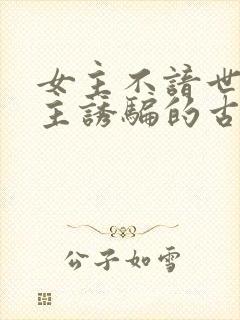 女主不諳世
主誘騙的古
公子如雪